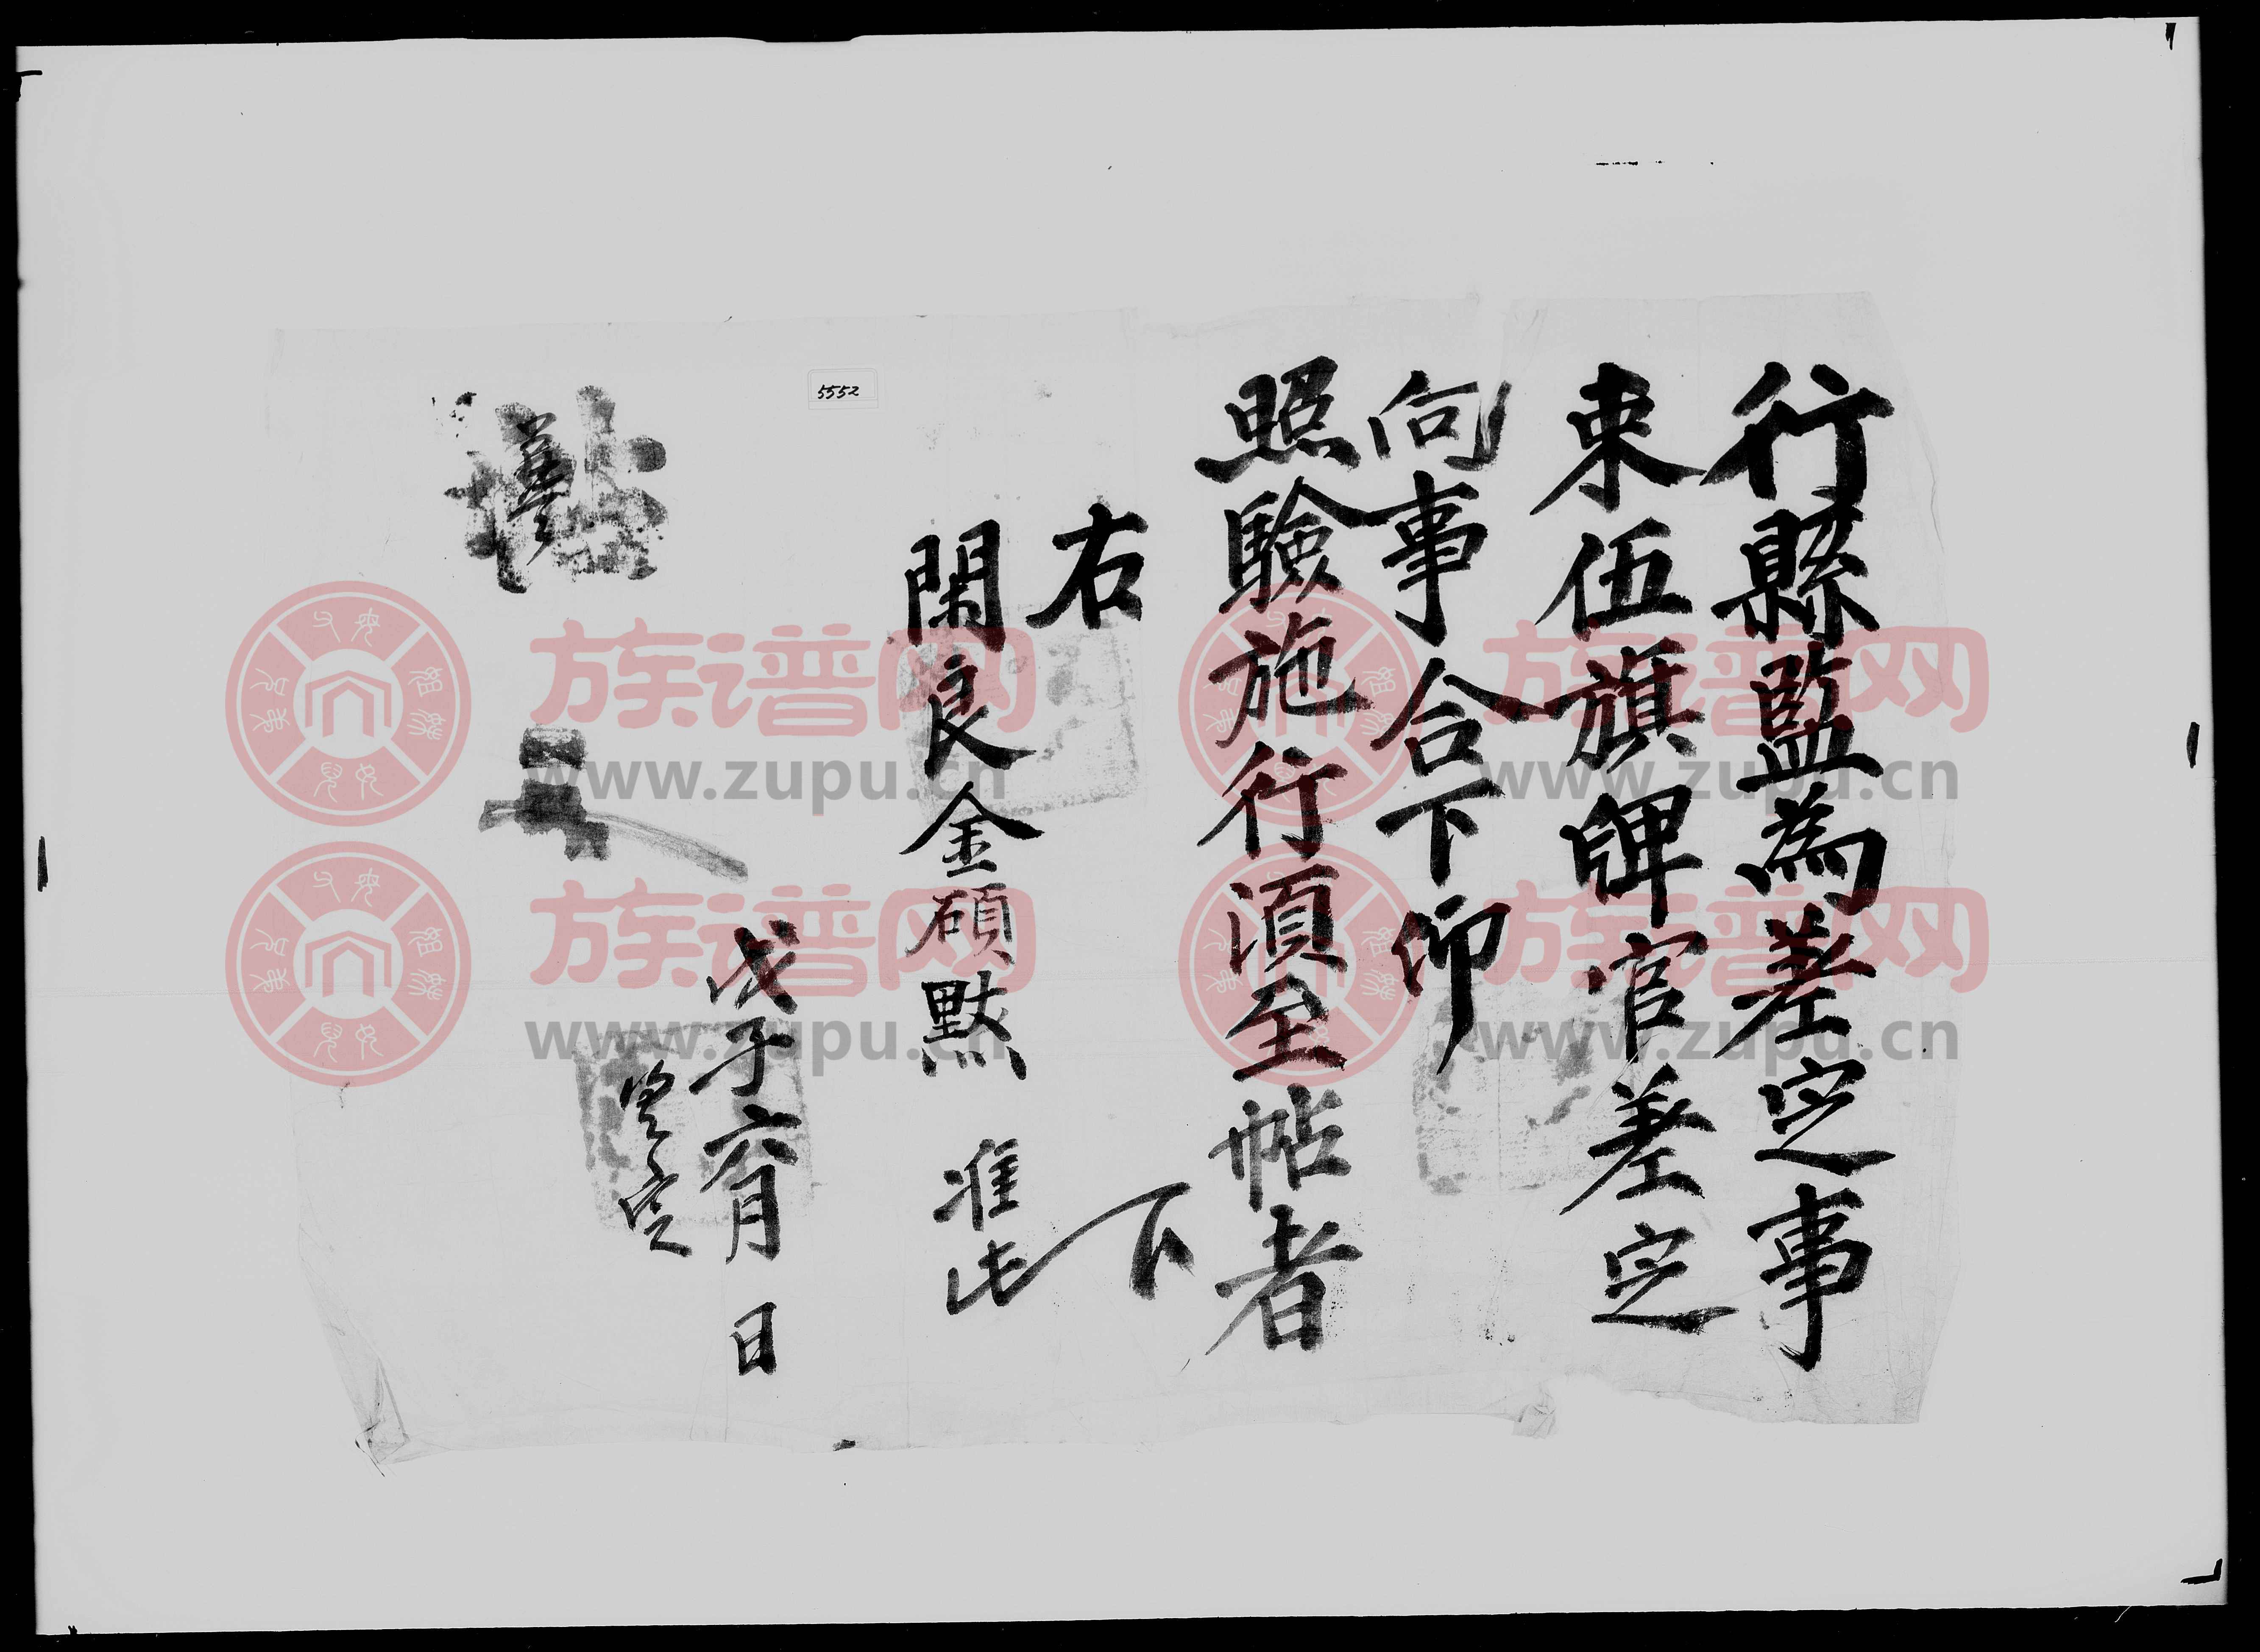 行縣監爲差定事
束伍旗牌官差定
向事合下仰
照驗施行須至帖者
右 下
閑良金碩默 準此
戊子六月 日
差定
帖
5552
族谱网
www.zupu.cn
族谱网
www.zupu.cn
族谱网
www.zupu.cn
族谱网
www.zupu.cn